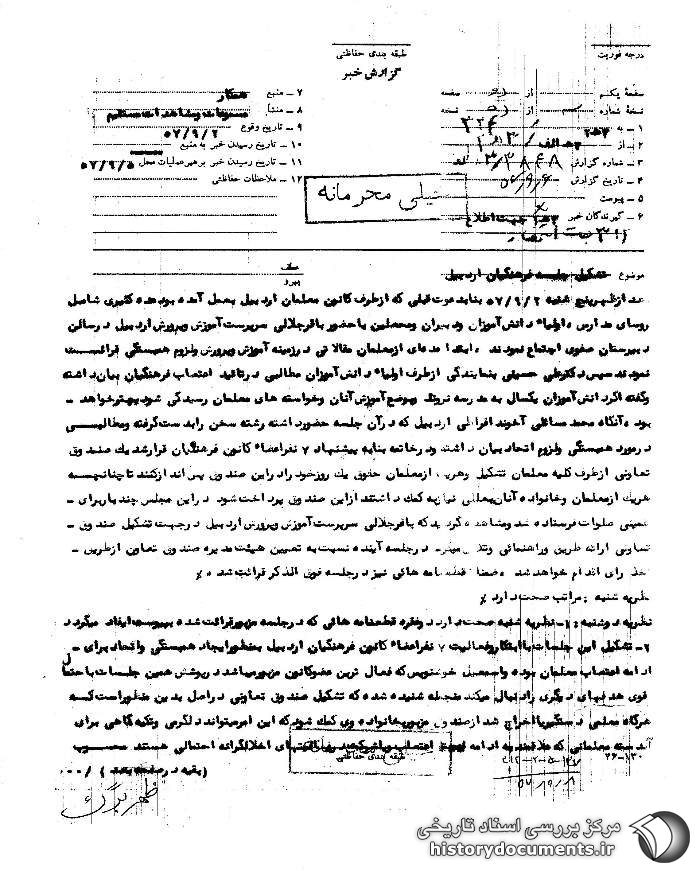 درجه فوریت
طبقه بندی حفاظتی
گزارش خبر
صفحهٔ یکم از صفحه
نسخهٔ شماره از نسخه
۱ - به ۳۲۴
۲ - از ۳ الف
۳ - شماره گزارش
۴ - تاریخ گزارش
۵ - پیوست
۶ - گیرندگان خبر جهت اطلاع
۷ - منبع همکار
۸ - منشأ مسموعات و مشاهدات مستقیم
۹ - تاریخ وقوع ۵۷/۹/۲
۱۰ - تاریخ رسیدن خبر به منبع
۱۱ - تاریخ رسیدن خبر برهبر عملیات محل ۵۷/۹/۵
۱۲ - ملاحظات حفاظتی
خیلی محرمانه
موضوع تشکیل جلسه فرهنگیان اردبیل
پیرو
بعد از ظهر پنج شنبه ۵۷/۹/۲ بنابدعوت قبلی که از طرف کانون معلمان اردبیل بعمل آمده بود عده کثیری شامل
روسای مدارس و اولیاء دانش آموزان و دبیران و محصلین با حضور باقر جلالی سرپرست آموزش و پرورش اردبیل در سالن
دبیرستان صفوی اجتماع نمودند . ابتدا عده ای از معلمان مقالاتی در زمینه آموزش و پرورش و لزوم همبستگی قرائت
نمودند سپس دکتر علی حسینی بنمایندگی از طرف اولیاء دانش آموزان مطالبی در تائید اعتصاب فرهنگیان بیان داشته
و گفته اگر دانش آموزان یکسال به مدرسه نروند بوضع آموزش آنان و خواسته های معلمان رسیدگی شود بهتر خواهد -
بود . آنگاه محمد مسائلی آخوند افراطی اردبیل که در آن جلسه حضور داشته رشته سخن را بدست گرفته و مطالبی
در مورد همبستگی و لزوم اتحاد بیان داشته و در خاتمه بنا به پیشنهاد ۷ نفر اعضاء کانون فرهنگیان قرار شد یک صندوق
تعاونی از طرف کلیه معلمان تشکیل و هر یک از معلمان حقوق یک روز خود را در این صندوق پس انداز کنند تا چنانچه
هر یک از معلمان و خانواده آنان بعللی نیاز به کمک داشتند از این صندوق پرداخت شود . در این مجلس چند بار برای -
خمینی صلوات فرستاده شد و مشاهده گردید که باقر جلالی سرپرست آموزش و پرورش اردبیل در جهت تشکیل صندوق -
تعاونی ارائه طریق و راهنمائی و تلاش مینمود . در جلسه آینده نسبت به تعیین هیئت مدیره صندوق تعاون از طریق -
اخذ رای اقدام خواهد شد . ضمنا قطعنامه هائی نیز در جلسه فوق الذکر قرائت شد .
نظریه شنبه : مراتب صحت دارد
نظریه دوشنبه : ۱ - نظریه شنبه صحت دارد دو فقره قطعنامه هائی که در جلسه مزبور قرائت شده بپیوست ایفاد میگردد
۲ - تشکیل این جلسات با ابتکار و فعالیت ۷ نفر اعضاء کانون فرهنگیان اردبیل بمنظور ایجاد همبستگی و اتحاد برای -
ادامه اعتصاب معلمان بوده و اسمعیل خوشنویس که فعال ترین عضو کانون مزبور میباشد در پوشش همین جلسات با احتمال
قوی هدفهای دیگری را دنبال میکند منجمله شنیده شده که تشکیل صندوق تعاونی در اصل بدین منظور است که
هرگاه معلمی دستگیر یا اخراج شد از صندوق مزبور بخانواده وی کمک شود که این امر میتواند دلگرمی و تکیه گاهی برای
آن دسته معلمانی که علاقمند به ادامه اعتصاب و اخلالگرانه احتمالی هستند محسوب
(بقیه در صفحه بعد) /۰۰۰
طبقه بندی حفاظتی
۲۶-۱۳۰
مرکز بررسی اسناد تاریخی
historydocuments.ir